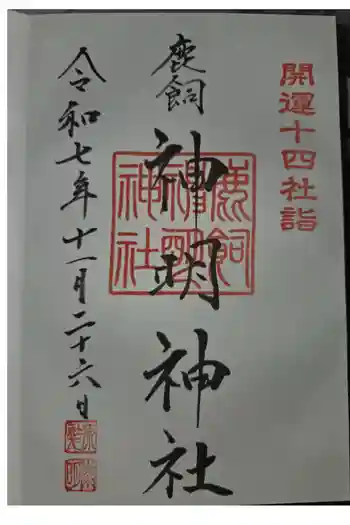 開運十四社詣
鹿飼
神明神社
鹿飼
神明
神社
令和七年十一月二十六日